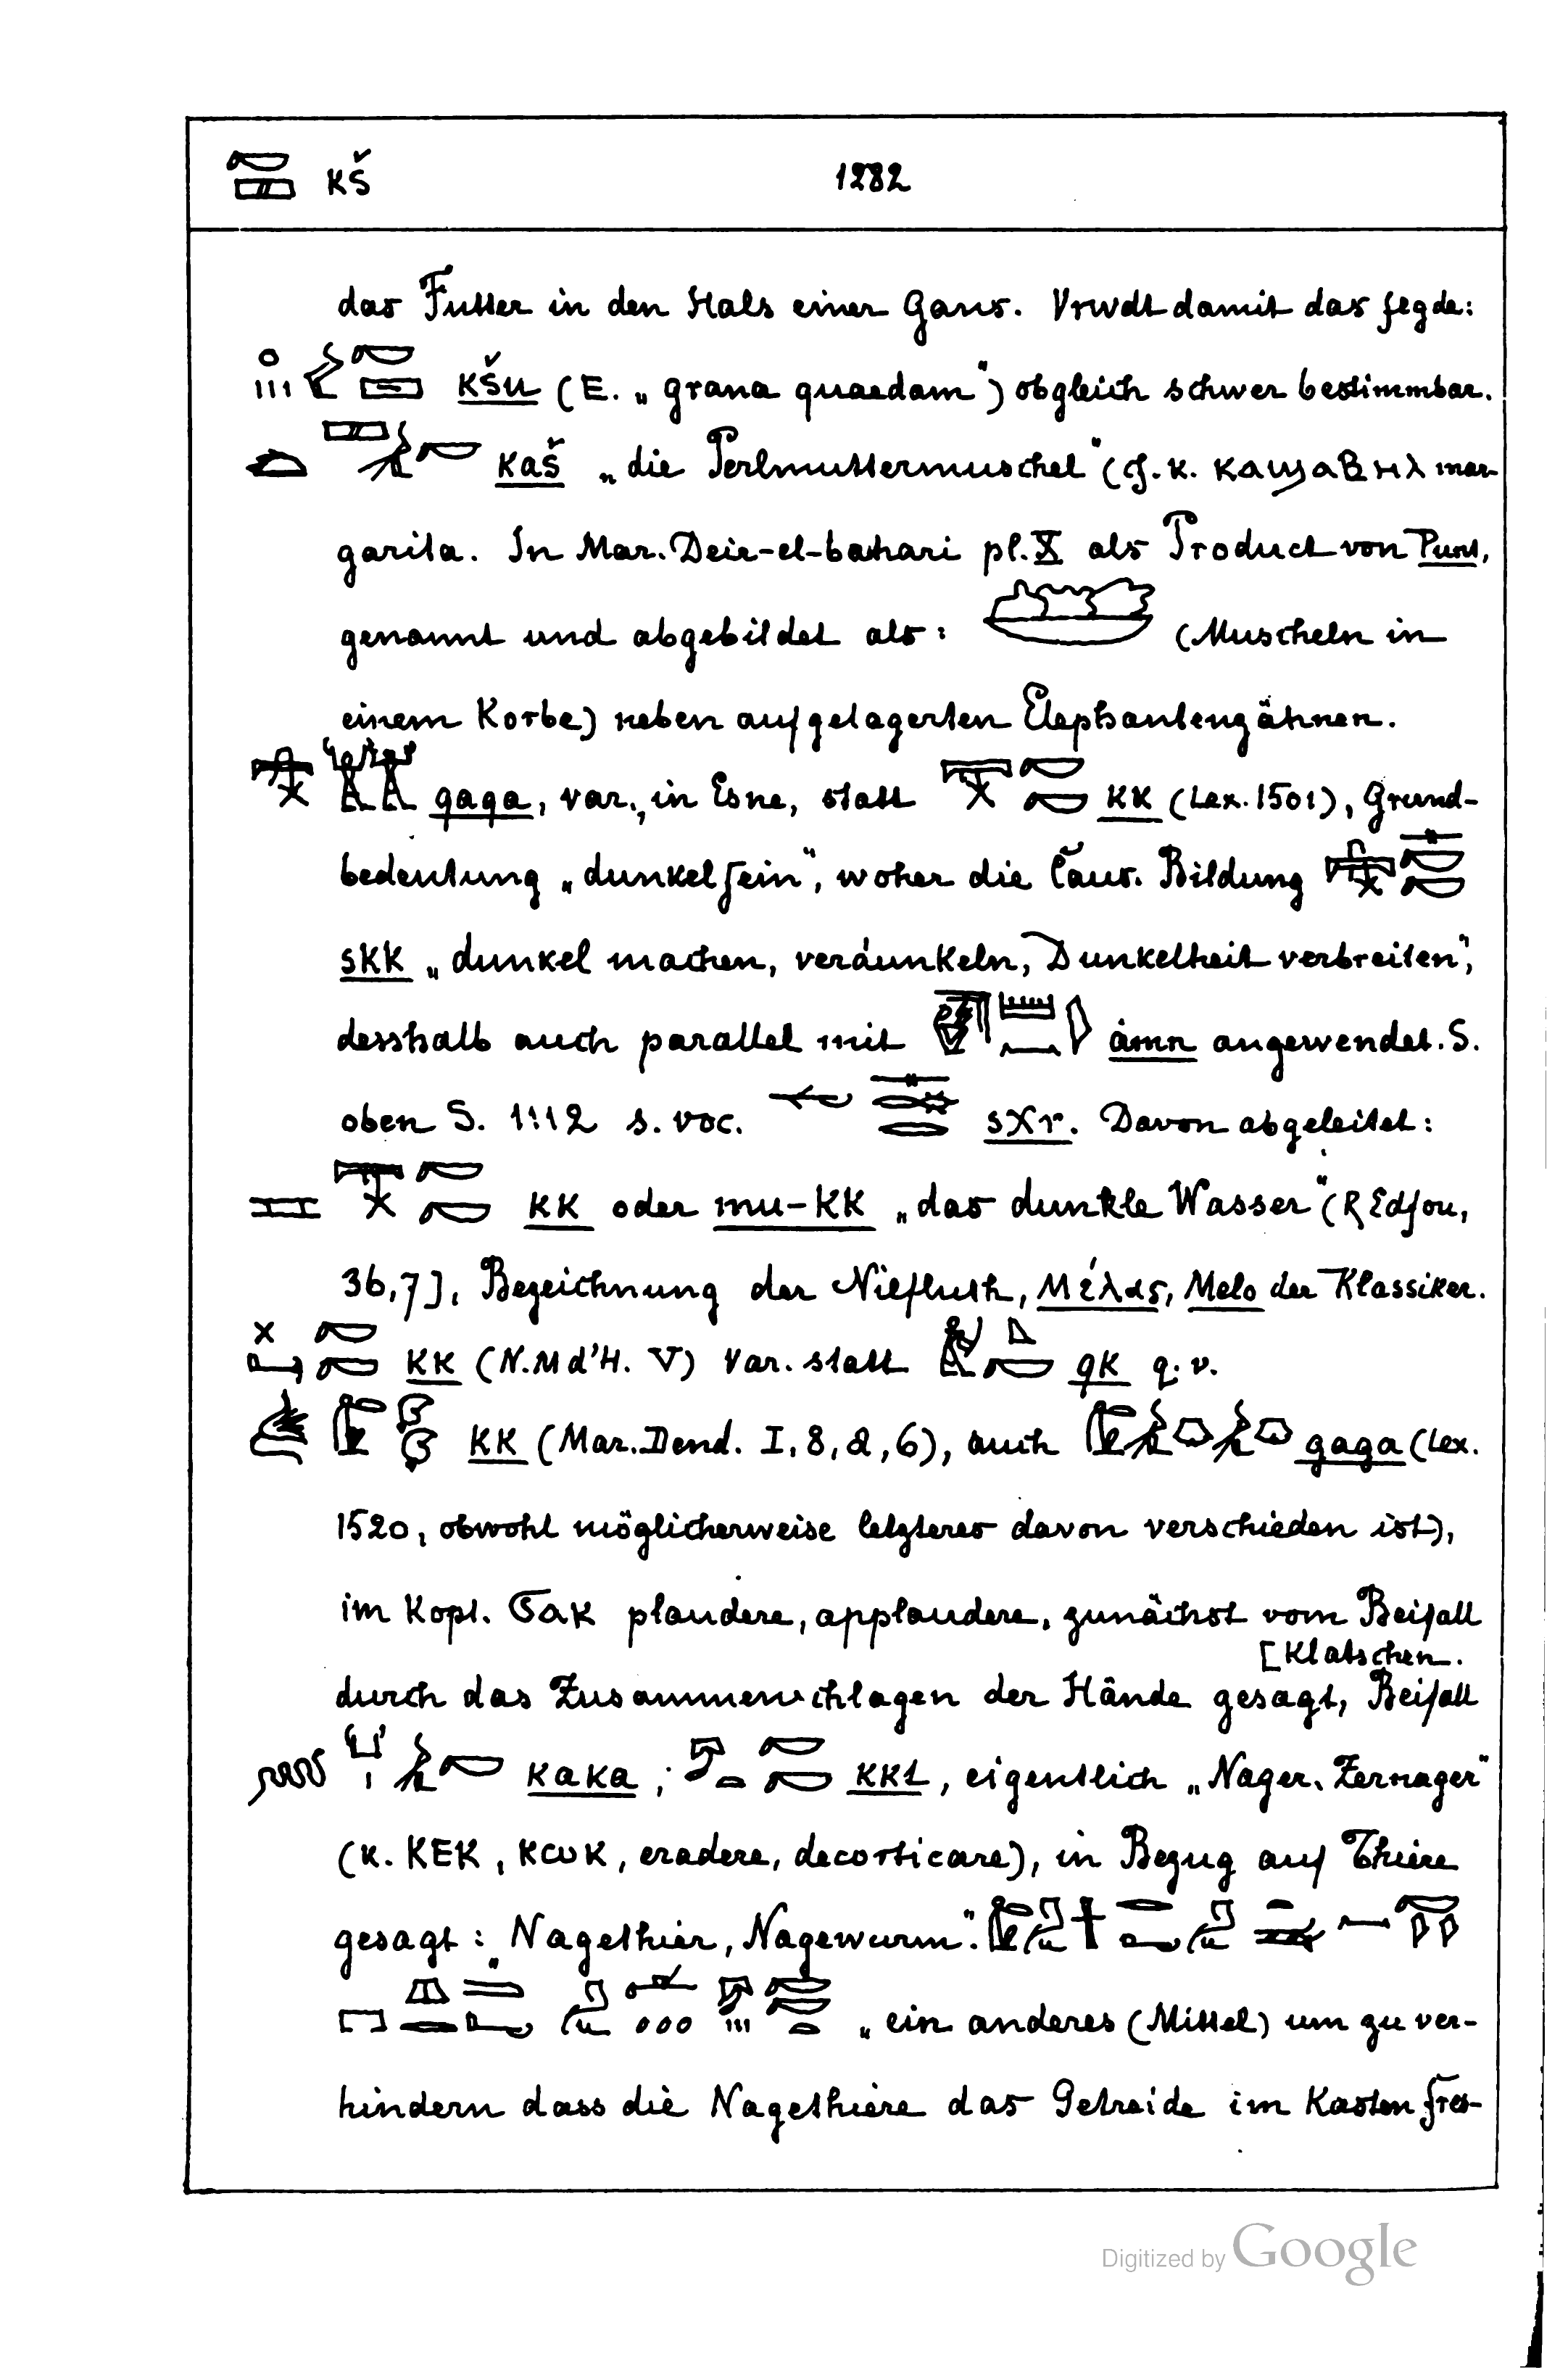 kš 1282
das Futter in den Hals einer Gans. Vrwdt damit das fegde:
kšu (E. „grana quaedam") obgleich schwer bestimmbar.
kaš „die Perlmuttermuschel" (cf. k. ⲕⲁϣⲁⲃⲏⲗ mar-
garita. In Mar. Deir-el-bahari pl. X als Product von Punt,
genannt und abgebildet als: (Muscheln in
einem Korbe) neben aufgelagerten Elephantenzähnen.
qaqa, var., in Esne, statt kk (Lex. 1501), Grund-
bedeutung „dunkel sein", woher die Caus. Bildung
skk „dunkel machen, verdunkeln, Dunkelheit verbreiten",
desshalb auch parallel mit åmn angewendet. S.
oben S. 1112 s. voc. sχr. Davon abgeleitet:
kk oder mu-kk „das dunkle Wasser" (R Edfou,
36,7), Bezeichnung der Nilfluth, Μέλας, Melo der Klassiker.
kk (N. M d'H. V) Var. statt qk q. v.
kk (Mar. Dend. I, 8, a, 6), auch gaga (Lex.
1520, obwohl möglicherweise letzteres davon verschieden ist),
im Kopt. ϭⲁⲕ plaudere, applaudere, zunächst vom Beifall
[klatschen.
durch das Zusammenschlagen der Hände gesagt, Beifall
kaka; kkt, eigentlich „Nager, Zernager"
(k. ⲕⲉⲕ, ⲕⲱⲕ, eradere, decorticare), in Bezug auf Thiere
gesagt: „Nagethier, Nagewurm".
„ein anderes (Mittel) um zu ver-
hindern dass die Nagethiere das Getreide im Kasten fres-
Digitized by Google